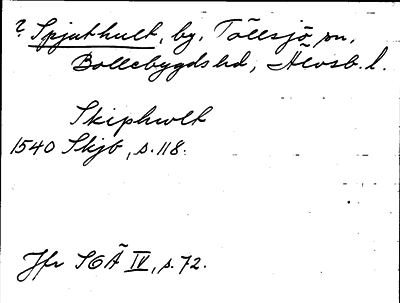 ? Spjuthult, by, Töllsjö sn,
Bollebygds hd, Älvsb. l.
Skiphult
1540 Skjb, s. 118.
Jfr SOÄ IV, s. 72.